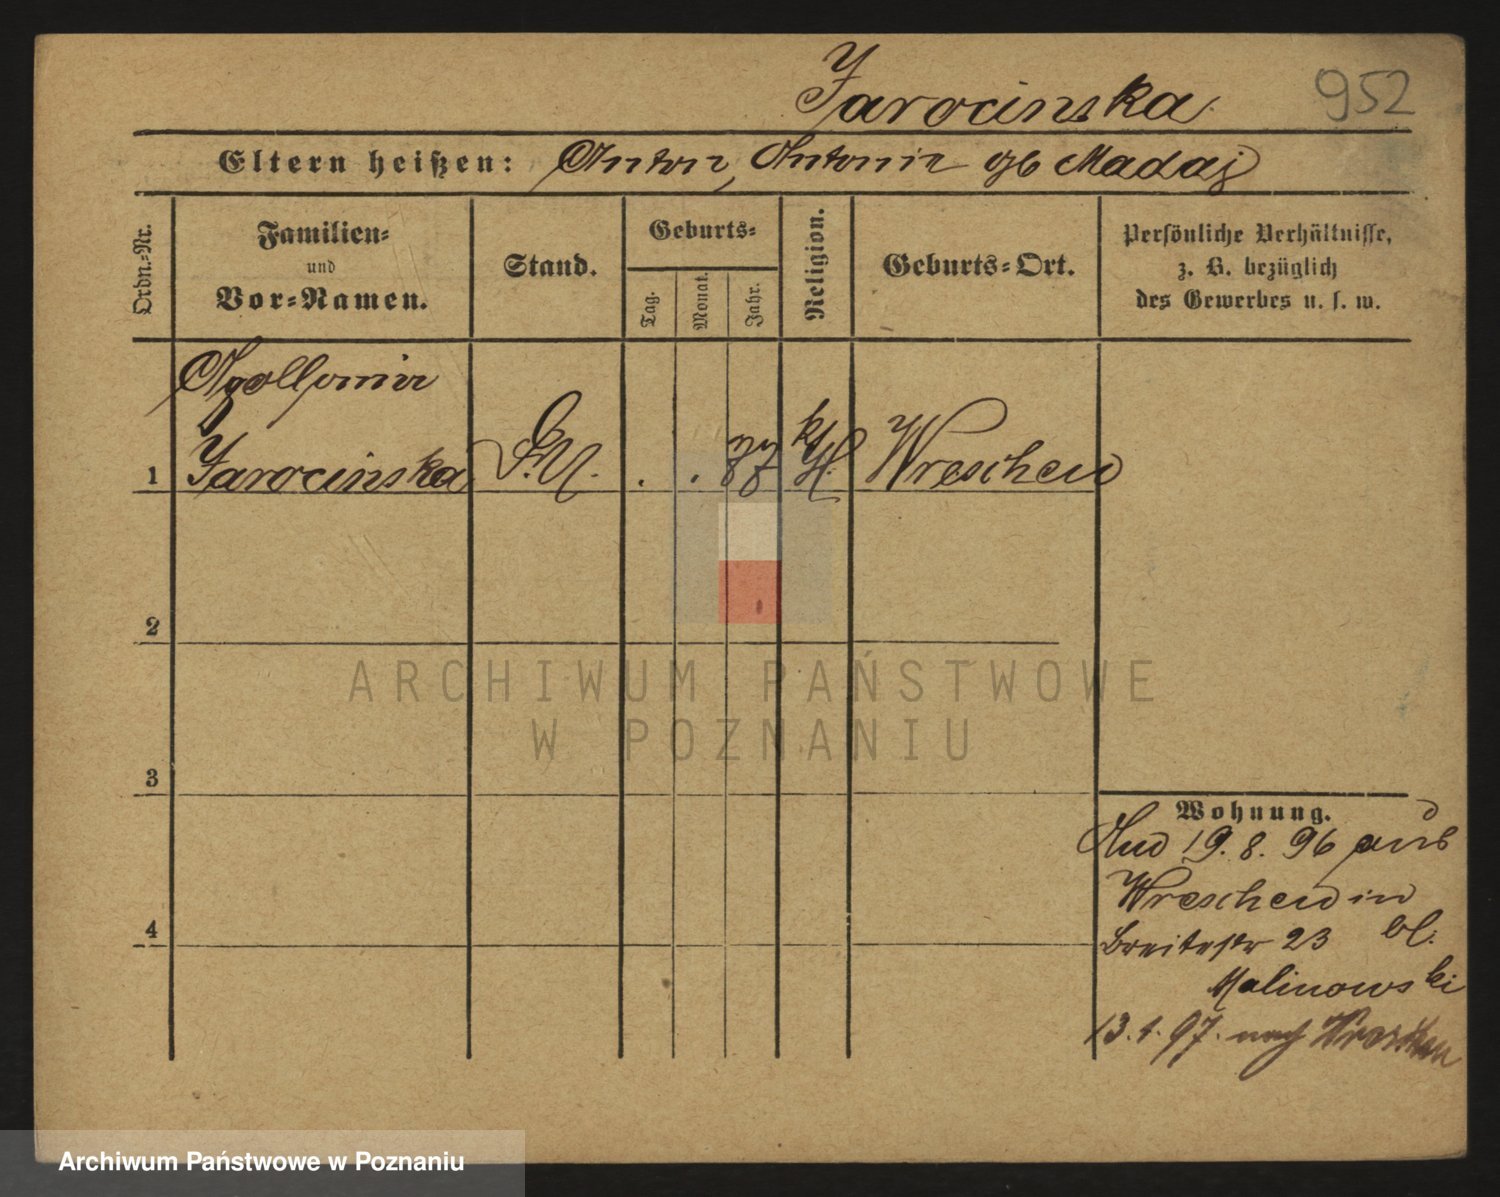 Jarocinska
952
Eltern heißen: Anton, Antonie gb Madaj
Ordn.-Nr.
Familien-
und
Vor-Namen.
Stand.
Geburts-
Tag.
Monat.
Jahr.
Religion.
Geburts-Ort.
Persönliche Verhältnisse,
z. B. bezüglich
des Gewerbes u. s. w.
Apollonia
1 Jarocinska . . 77 kth. Wreschen
2
3
4
Wohnung.
19. 8. 96 aus
Wreschen in
Breitestr 23 bl.
Malinowski
13. 1. 97. nach Wreschen
ARCHIWUM PAŃSTWOWE
W POZNANIU
Archiwum Państwowe w Poznaniu